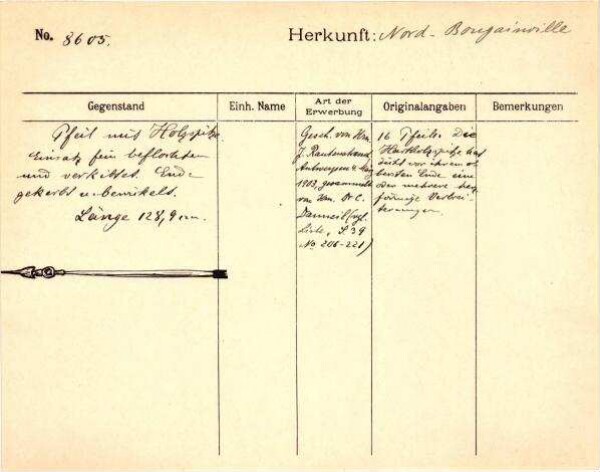 No. 8605.
Herkunft: Nord-Bougainville
Gegenstand
Einh. Name
Art der Erwerbung
Originalangaben
Bemerkungen
Pfeil mit Holzspitze
Einsatz fein beflochten
und verkittet. Ende
gekerbt u. bewickelt.
Länge 128,9 cm.
Gesch. von Hrn.
J. Rautenstrauch
Antwerpen
1903, gesammelt
von Hrn. Dr C.
Danneil (vgl.
Liste, S. 39
No 206-221)
16 Pfeile. Die
Hartholzspitze hat
dicht vor ihrem
Ende eine
oder mehrere
förmige